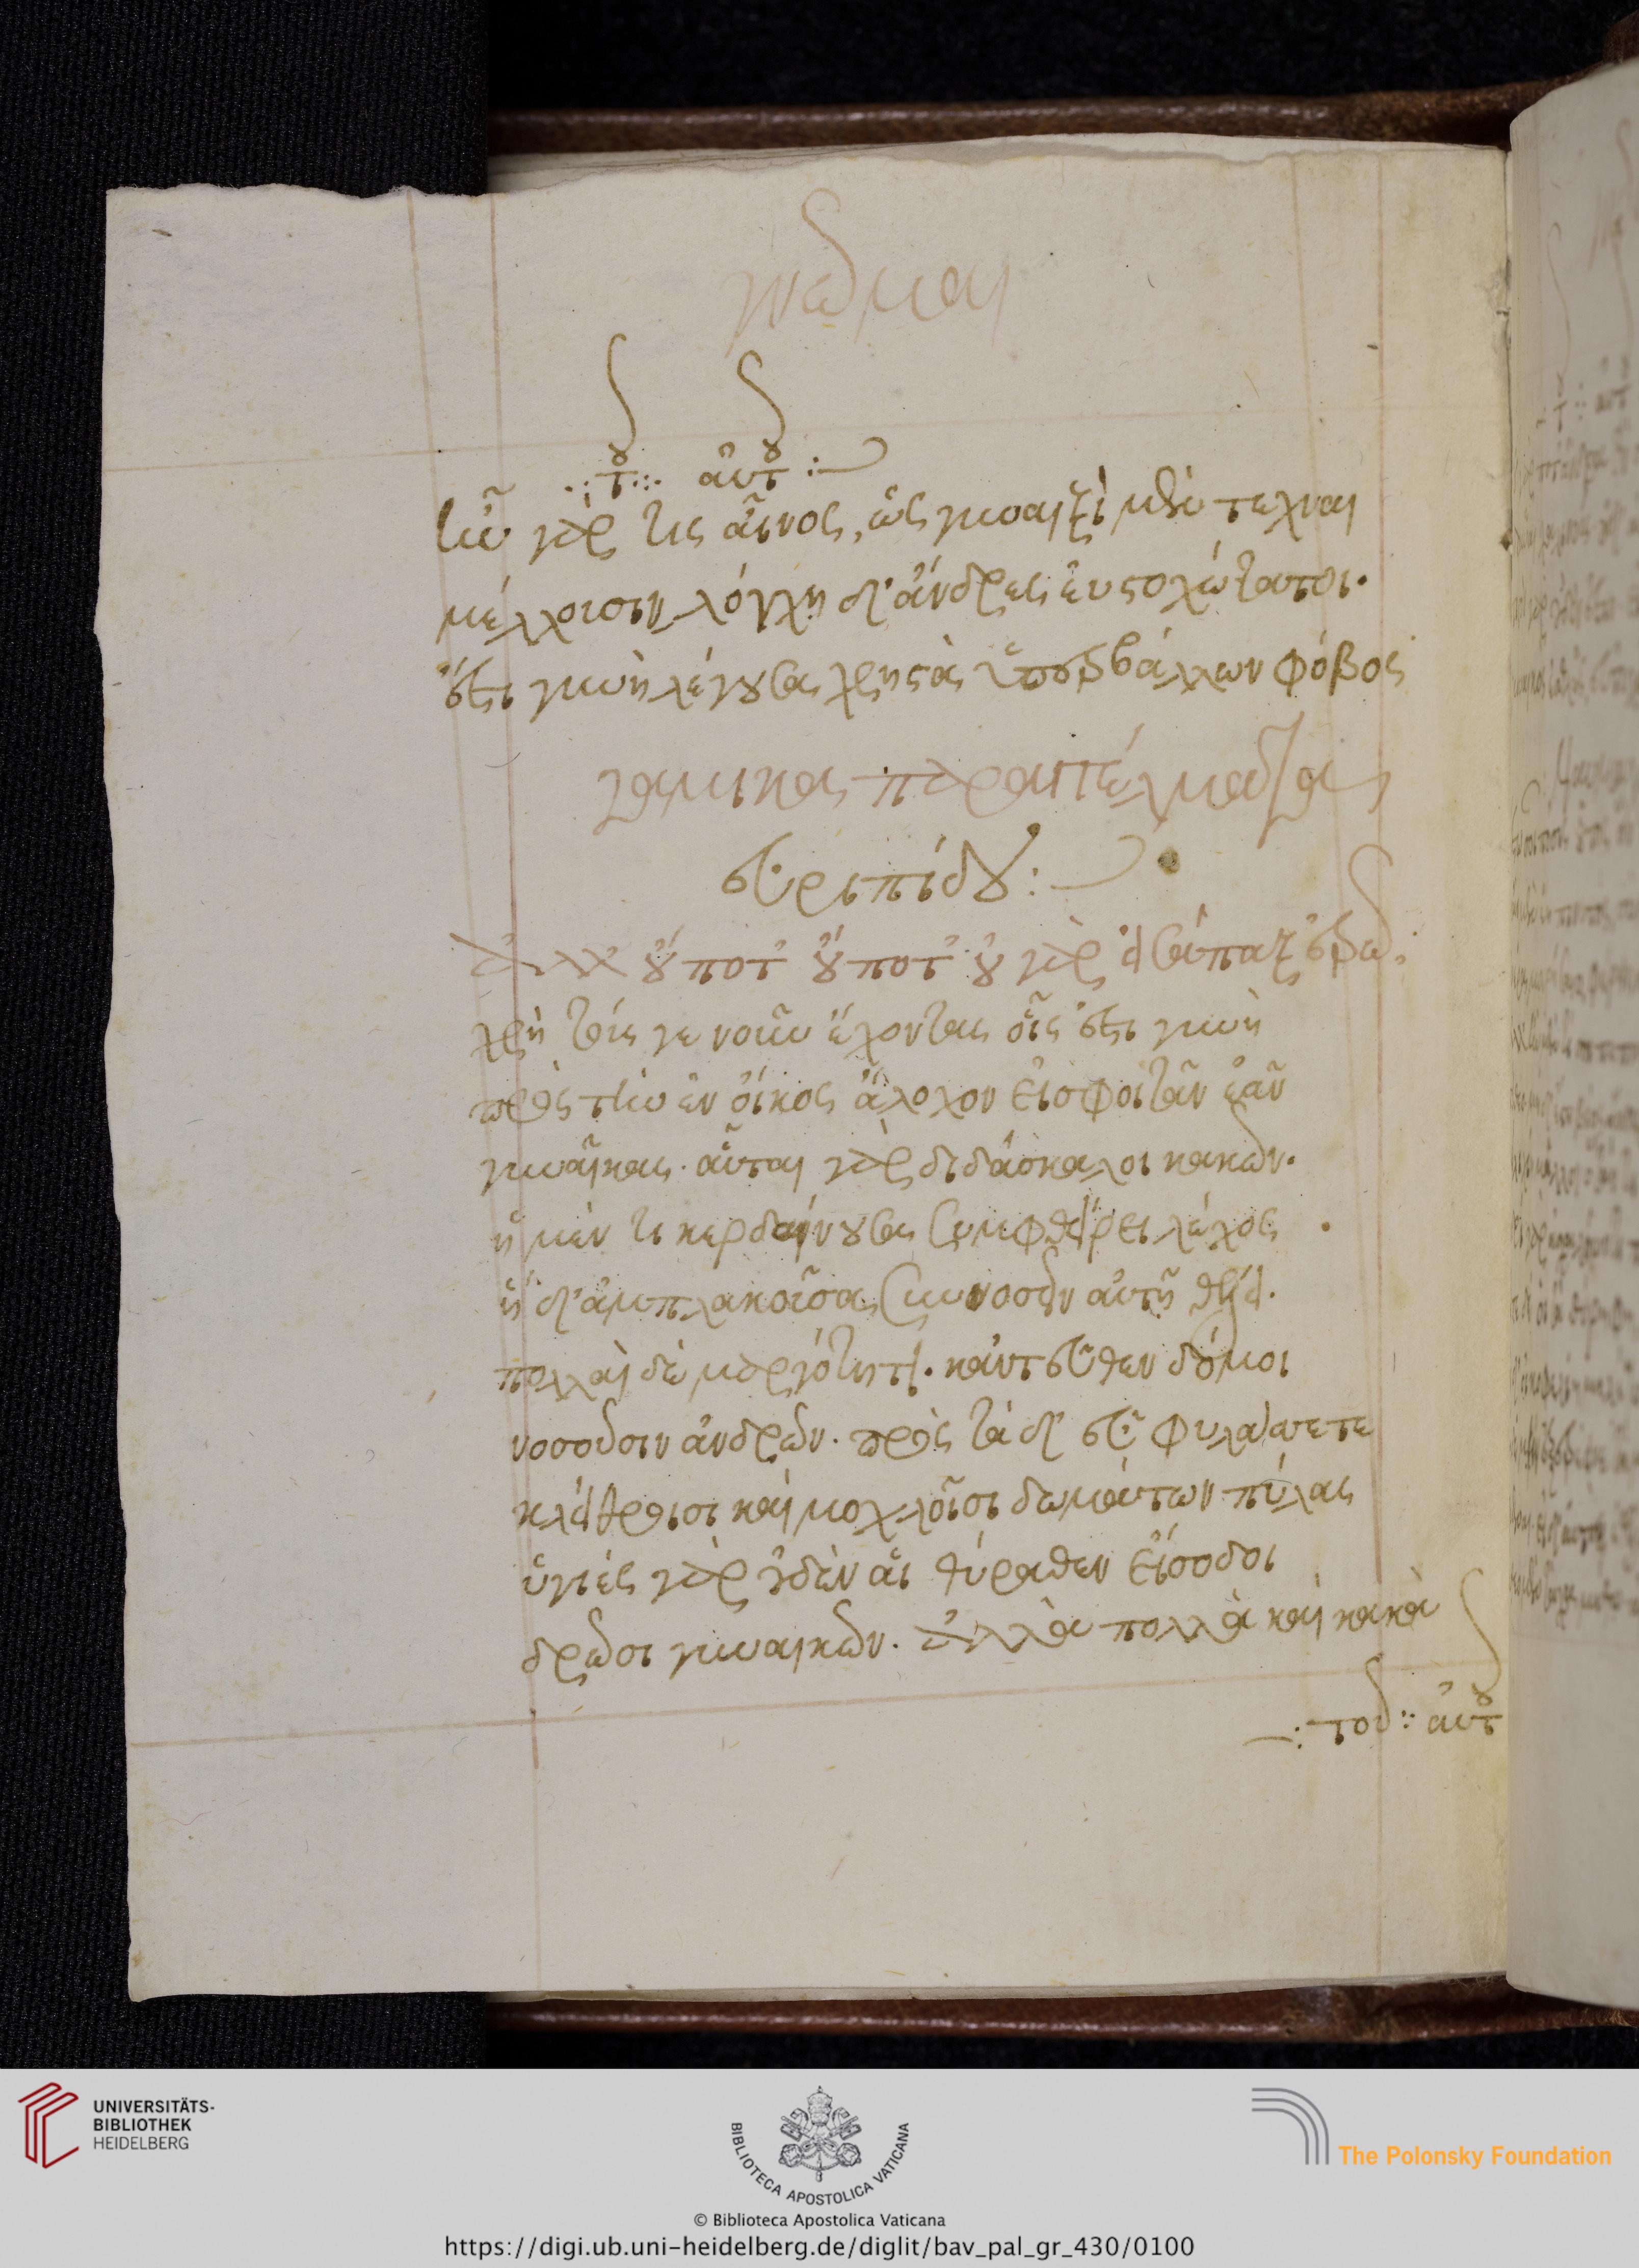 γνῶμαι
τοῦ αὐτοῦ
ἦν γάρ τις αἶνος, ὡς γυναιξὶ μὲν τέχναι
μέλλουσιν λόγχη δ' ἄνδρες εὐστοχώτατοι.
ἔστι γυνὴ λέγουσα χρηστὰ ὑπερβάλλων φόβος
γαμικὰ παραγγέλματα
εὐριπίδου
ἀλλ' οὔποτ' οὔποτ' οὐ γὰρ εἰσάπαξ ἐρῶ
χρὴ τούς γε νοῦν ἔχοντας οἷς ἔστι γυνὴ
πρὸς τὴν ἐν οἴκοις ἄλοχον εἰσφοιτᾶν ἐᾶν
γυναῖκας. αὗται γὰρ διδάσκαλοι κακῶν.
ἡ μέν τι κερδαίνουσα συμφθείρει λέχος
ἡ δ' ἀμπλακοῦσα συννοσεῖν αὐτῇ θέλει.
πολλαὶ δὲ μαργότητι. κἀντεῦθεν δόμοι
νοσοῦσιν ἀνδρῶν. πρὸς τάδ' εὖ φυλάσσετε
κλείθροισι καὶ μοχλοῖσι δωμάτων πύλας
ὑγιὲς γὰρ οὐδὲν αἱ θύραθεν εἴσοδοι
δρῶσι γυναικῶν. ἀλλὰ πολλὰ καὶ κακὰ
τοῦ αὐτοῦ
UNIVERSITÄTS-
BIBLIOTHEK
HEIDELBERG
BIBLIOTECA APOSTOLICA VATICANA
The Polonsky Foundation
© Biblioteca Apostolica Vaticana
https://digi.ub.uni-heidelberg.de/diglit/bav_pal_gr_430/0100